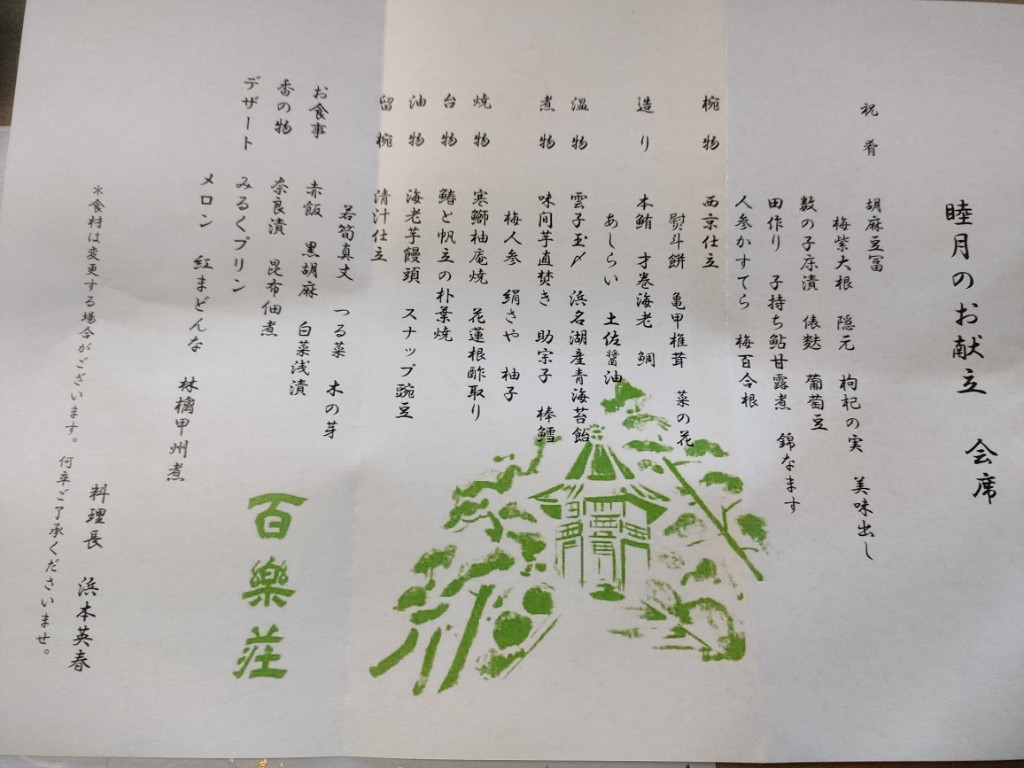 睦月のお献立　会席
祝肴　胡麻豆冨
梅紫大根　隠元　枸杞の実　美味出し
数の子床漬　俵麩　葡萄豆
田作り　子持ち鮎甘露煮　錦なます
人参かすてら　梅百合根
椀物　西京仕立
熨斗餅　亀甲椎茸　菜の花
造り　本鮪　才巻海老　鯛
あしらい　土佐醤油
温物　雲子玉〆　浜名湖産青海苔餡
煮物　味間芋直焚き　助宗子　棒鱈
梅人参　絹さや　柚子
焼物　寒鰤柚庵焼　花蓮根酢取り
台物　鰆と帆立の朴葉焼
油物　海老芋饅頭　スナップ豌豆
留椀　清汁仕立
若筍真丈　つる菜　木の芽
お食事　赤飯　黒胡麻　白菜浅漬
香の物　奈良漬　昆布佃煮
デザート　みるくプリン
メロン　紅まどんな　林檎甲州煮
百樂荘
料理長　浜本英春
＊食材は変更する場合がございます。何卒ご了承くださいませ。